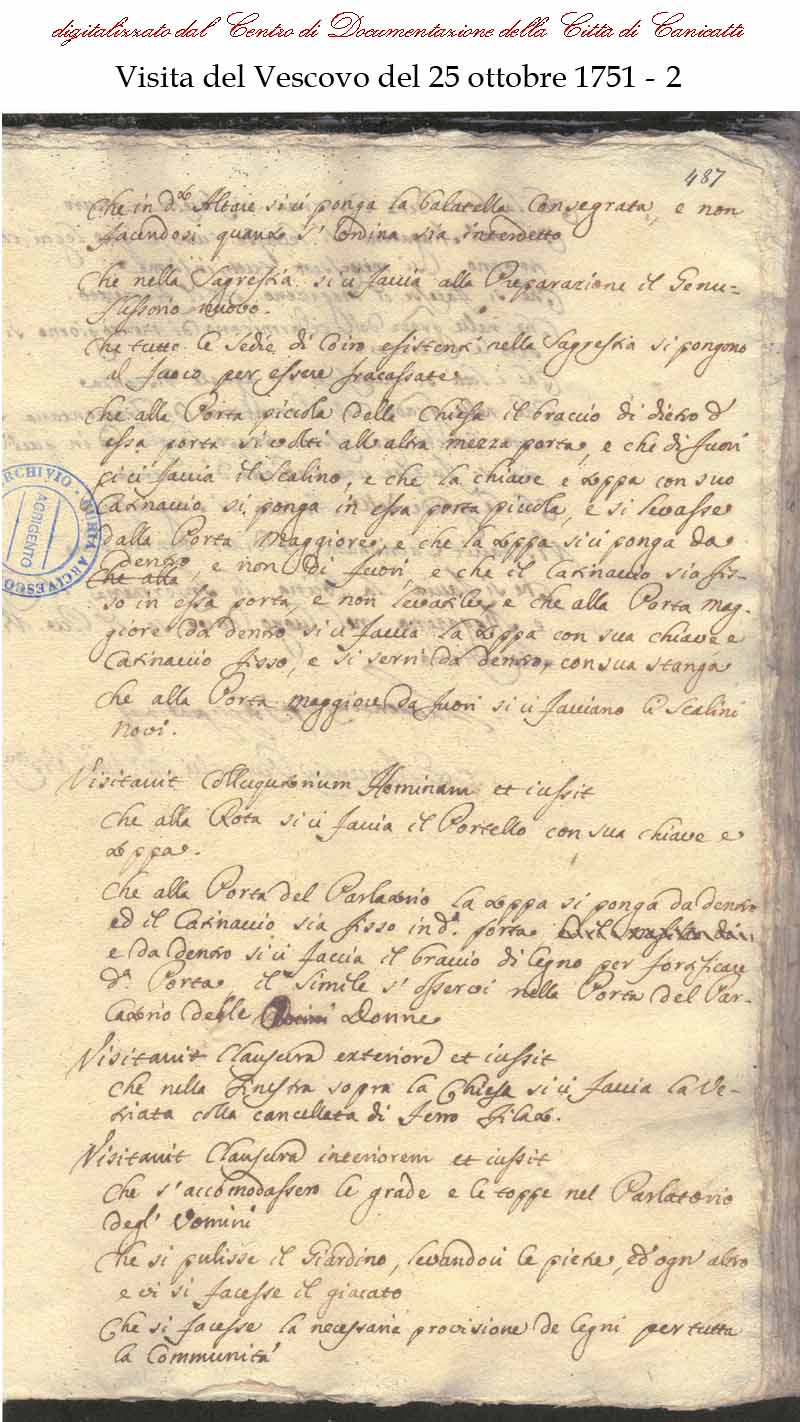 digitalizzato dal Centro di Documentazione della Città di Canicattì
Visita del Vescovo del 25 ottobre 1751 - 2
487
Che in d.to Altare si ci ponga la balatella Consegrata, e non
facendosi quanto s'ordina sia interdetto
Che nella Sagrestia si ci faccia alla Preparazione il Genu=
flussorio nuovo.
Che tutte le sedie di Coiro esistenti nella Sagrestia si pongono
al fuoco per essere fracassate
Che alla Porta piccola della Chiesa il braccio di dietro d'
essa porta si volti all'altra mezza porta, e che di fuori
si ci faccia il Scalino, e che la chiave e toppa con suo
Catinaccio si ponga in essa porta piccola, e si levasse
dalla Porta Maggiore, e che la toppa si ci ponga da
Che alla dentro, e non di fuori, e che il Catinaccio sia fis-
so in essa porta, e non levatile, e che alla Porta mag-
giore da dentro si ci faccia la toppa con sua chiave e
Catinaccio fisso, e si serri da dentro, con sua stanga
Che alla Porta maggiore da fuori si ci facciano li Scalini
novi.
Visitavit Colluqutorium Hominum et iussit
Che alla Rota si ci faccia il Portello con sua chiave e
toppa.
Che alla Porta del Parlatorio la toppa si ponga da dentro
ed il Catinaccio sia fisso in d.a porta
e da dentro si ci faccia il braccio di legno per fortificare
d.a Porta, il simile s'osservi nella Porta del Par-
latorio delle Donne
Visitavit Clausura exteriore et iussit
Che nella Finestra sopra la Chiesa si ci faccia la Ve-
triata colla cancellata di ferro filato.
Visitavit Clausura interiorem et iussit
Che s'accomodassero le grade e le toppe nel Parlatorio
degl' Uomini
Che si pulisse il Giardino, levandoci le pietre, ed ogn' altro
e vi si facesse il giacato
Che si facesse la necessaria provisione de legni per tutta
la Communità
ARCHIVIO · CURIA ARCIVESCO
AGRIGENTO